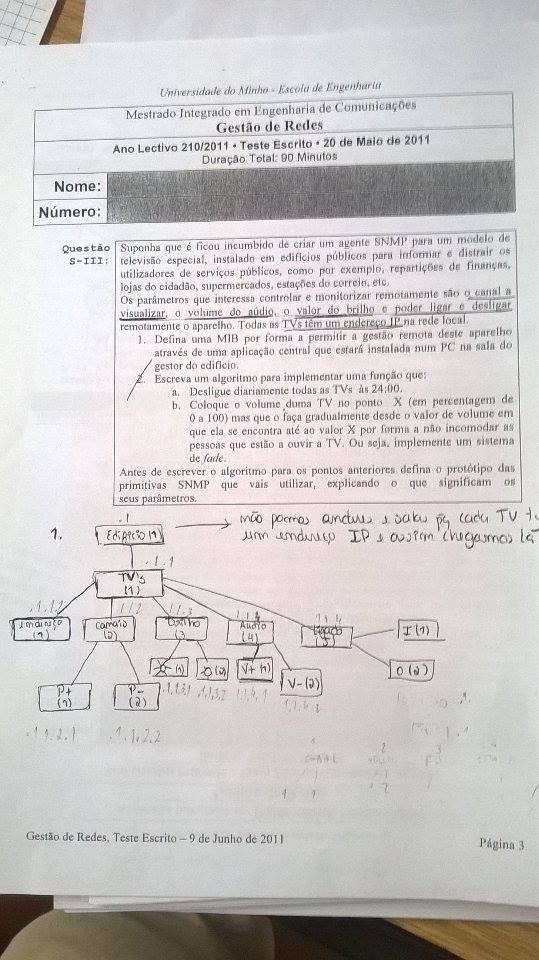 Universidade do Minho - Escola de Engenharia
Mestrado Integrado em Engenharia de Comunicações
Gestão de Redes
Ano Lectivo 210/2011 • Teste Escrito • 20 de Maio de 2011
Duração Total: 90 Minutos
Nome:
Número:
Questão
S-III:
Suponha que é ficou incumbido de criar um agente SNMP para um modelo de
televisão especial, instalado em edifícios públicos para informar e distrair os
utilizadores de serviços públicos, como por exemplo, repartições de finanças,
lojas do cidadão, supermercados, estações do correio, etc.
Os parâmetros que interessa controlar e monitorizar remotamente são o canal a
visualizar, o volume do aúdio, o valor do brilho e poder ligar e desligar
remotamente o aparelho. Todas as TVs têm um endereço IP na rede local.
1. Defina uma MIB por forma a permitir a gestão remota deste aparelho
através de uma aplicação central que estará instalada num PC na sala do
gestor do edifício.
2. Escreva um algoritmo para implementar uma função que:
a. Desligue diariamente todas as TVs às 24:00.
b. Coloque o volume duma TV no ponto X (em percentagem de
0 a 100) mas que o faça gradualmente desde o valor de volume em
que ela se encontra até ao valor X por forma a não incomodar as
pessoas que estão a ouvir a TV. Ou seja, implemente um sistema
de fade.
Antes de escrever o algoritmo para os pontos anteriores defina o protótipo das
primitivas SNMP que vais utilizar, explicando o que significam os
seus parâmetros.
.1
1.
Edifício (1)
não pomos andares e salas pq cada TV t
um endereço IP e assim chegamos lá
.1.1
TV's
(1)
.1.1.2
1.1.3
Endereço
(1)
Canais
(2)
Brilho
(3
Audio
(4)
Ligado
(5)
I (1)
O (2)
(1)
(2)
V+ (1)
V- (2)
P+
(1)
P-
(2)
.1.1.3.1
1.1.3.2
1.1.4.1
.1.1.2.1
.1.1.2.2
Gestão de Redes, Teste Escrito – 9 de Junho de 2011
Página 3